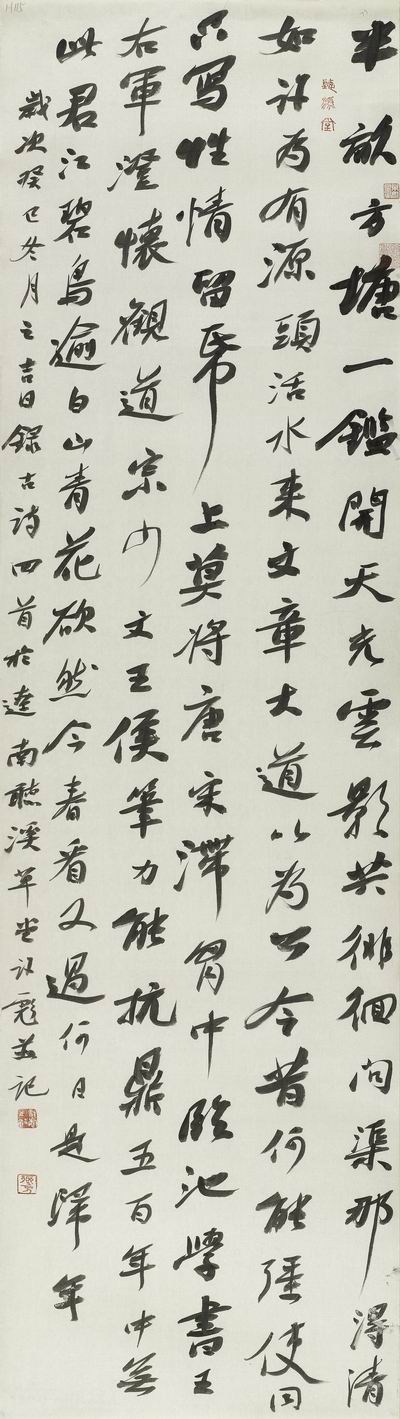 半畝方塘一鑑開天光雲影共徘徊問渠那得清
如許為有源頭活水來文章大道以為公今昔何能强使同
只寫性情留紙上莫將唐宋滯胷中臨池學書王
右軍澄懷觀道宗少文王侯筆力能抗鼎五百年中無
此君江碧鳥逾白山青花欲然今春看又過何日是歸年
歲次癸巳冬月之吉日錄古詩四首於遼南聽溪草堂 記